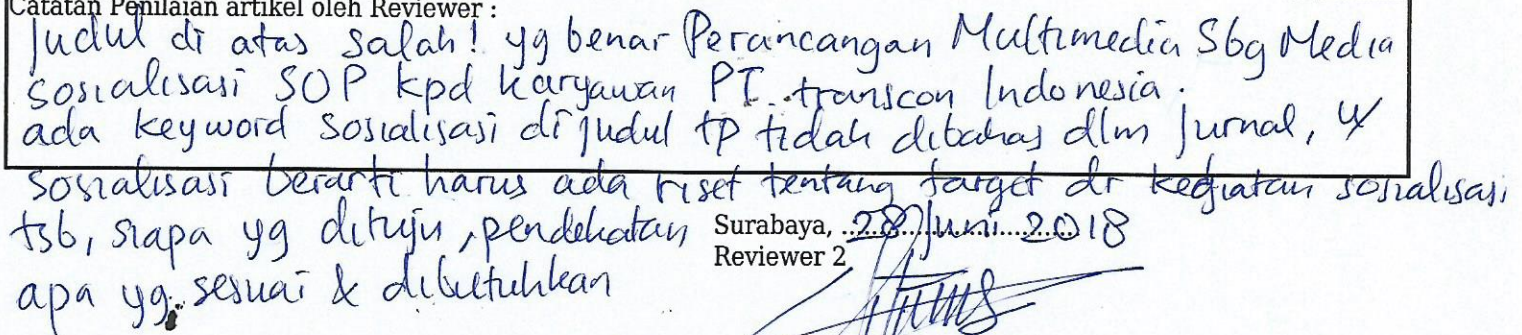 Catatan Penilaian artikel oleh Reviewer :
Judul di atas salah! yg benar Perancangan Multimedia Sbg Media
sosialisasi SOP kpd karyawan PT. transcon Indonesia.
ada keyword sosialisasi di judul tp tidak dibahas dlm jurnal, u/
sosialisasi berarti harus ada riset tentang target dr kegiatan sosialisasi
tsb, siapa yg dituju, pendekatan
apa yg sesuai & dibutuhkan
Surabaya, 28 Juni 2018
Reviewer 2